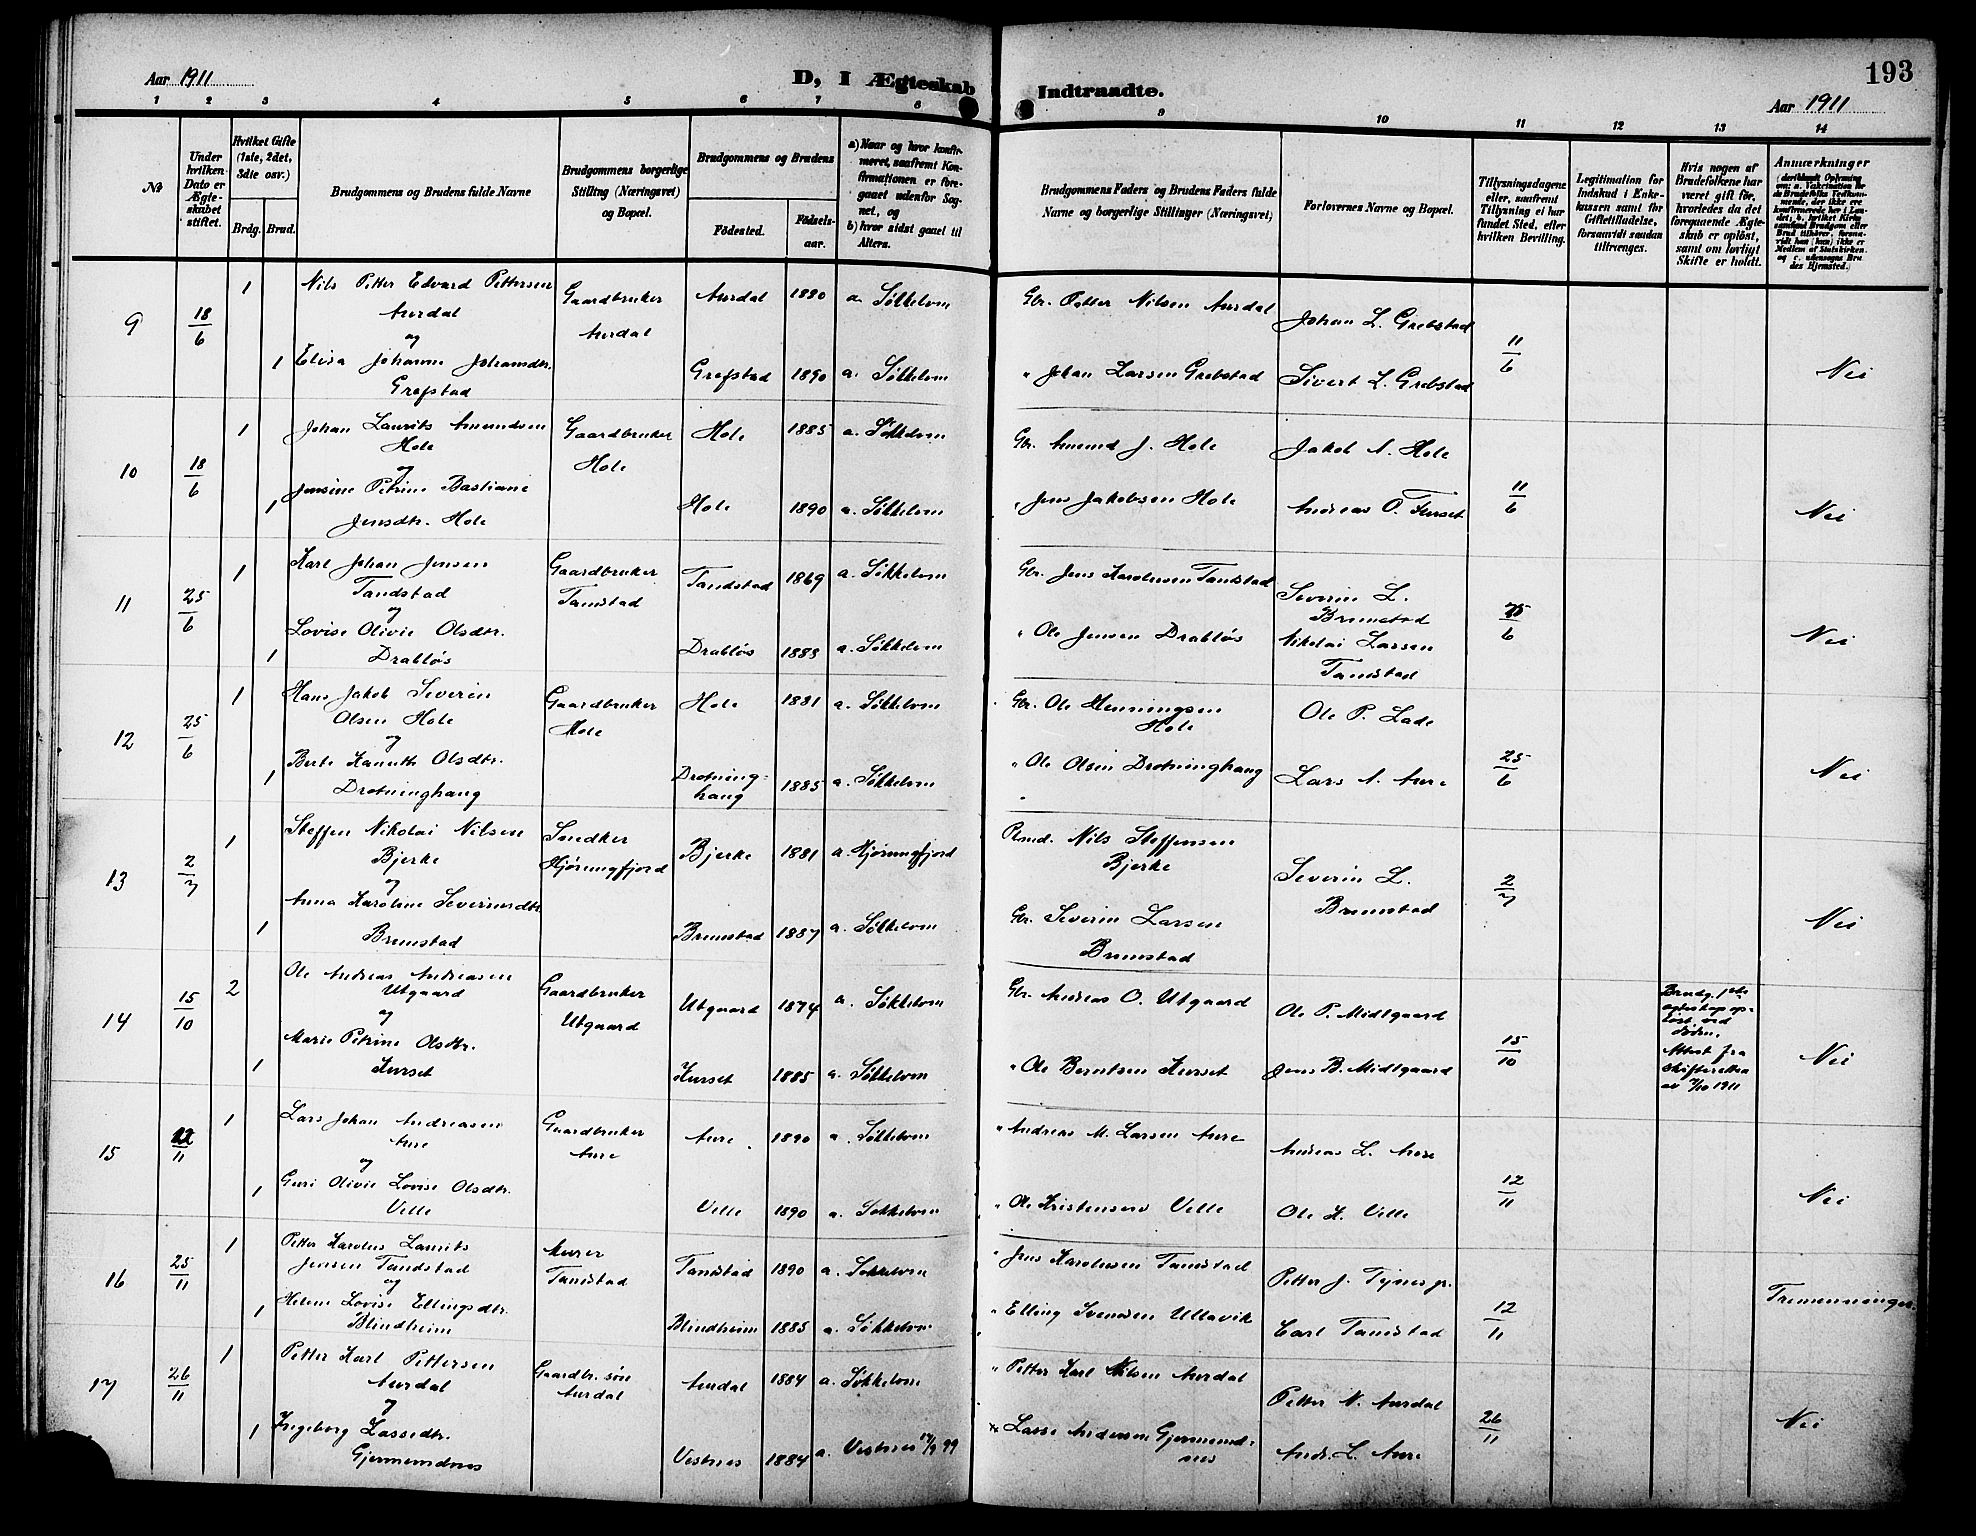 Aar 1911
D, I Ægteskab Indtraadte.
193
Aar 1911
1 2 3 4 5 6 7 8 9 10 11 12 13 14
No
Under hvilken Dato er Ægteskabet stiftet.
Hvilket Gifte (1ste, 2det, 3die osv.)
Brdg. Brud.
Brudgommens og Brudens fulde Navne
Brudgommens borgerlige Stilling (Næringsvei) og Bopæl.
Brudgommens og Brudens
Födested.
Födselsaar.
a) Naar og hvor konfirmeret, saafremt Konfirmationen er foregaaet udenfor Sognet, og
b) hvor sidst gaaet til Alters.
Brudgommens Faders og Brudens Faders fulde Navne og borgerlige Stillinger (Næringsvei)
Forlovernes Navne og Bopæl.
Tillysningsdagene eller, saafremt Tillysning ei har fundet Sted, efter hvilken Bevilling.
Legitimation for Indskud i Enkekassen samt for Giftetilladelse, forsaavidt saadan tiltrænges.
Hvis nogen af Brudefolkene har været gift før, hvorledes da det foregaaende Ægteskab er oplöst, samt om lovligt Skifte er holdt.
Anmærkninger
9 18/6 1 Nils Petter Edvard Pettersen Aurdal Gaardbruker Aurdal Aurdal 1880 a. Søkkelven Gbr. Petter Nilsen Aurdal Johan L. Grebstad 11/6
og
1 Elisa Johanne Johansdtr. Grefstad Grefstad 1890 a. Søkkelven " Johan Larsen Grebstad Sivert L. Grebstad Nei
10 18/6 1 Johan Laurits Amundsen Hole Gaardbruker Hole Hole 1885 a. Søkkelven Gbr. Amund J. Hole Jakob A. Hole 11/6
og
1 Jensine Petrine Bastiane Jensdtr. Hole Hole 1890 a. Søkkelven " Jens Jakobsen Hole Andreas O. Furset Nei
11 25/6 1 Karl Johan Jensen Tandstad Gaardbruker Tandstad Tandstad 1869 a. Søkkelven Gbr. Jens Karolusen Tandstad Severin L. Brunstad 25/6
og
1 Lovise Olivie Olsdtr. Drabløs Drabløs 1889 a. Søkkelven " Ole Jensen Drabløs Nikolai Larsen Tandstad Nei
12 25/6 1 Hans Jakob Severin Olsen Hole Gaardbruker Hole Hole 1881 a. Søkkelven Gbr. Ole Henningsen Hole Ole P. Lade 25/6
og
1 Berte Kanutte Olsdtr. Drotninghaug Drotninghaug 1885 a. Søkkelven " Ole Olsen Drotninghaug Lars A. Aure Nei
13 2/7 1 Steffen Nikolai Nilsen Bjerke Snedker Hjørungfjord Bjerke 1881 a. Hjørungfjord Plmd. Nils Steffensen Bjerke Severin L. Brunstad 2/7
og
1 Anna Karoline Severinsdtr. Brunstad Brunstad 1887 a. Søkkelven Gbr. Severin Larsen Brunstad Nei
14 15/10 2 Ole Andreas Andreasen Utgaard Gaardbruker Utgaard Utgaard 1874 a. Søkkelven Gbr. Andreas O. Utgaard Ole P. Midtgaard 15/10 Brudg. 1ste egteskap opløst ved døden. Attest fra skifteretten av 7/10 1911
og
1 Marie Petrine Olsdtr. Kurset Kurset 1885 a. Søkkelven " Ole Berntsen Kurset Jens B. Midtgaard Nei
15 12/11 1 Lars Johan Andreasen Aure Gaardbruker Aure Aure 1890 a. Søkkelven " Andreas M. Larsen Aure Andreas L. Aure 12/11
og
1 Guri Olivie Lovise Olsdtr. Velle Velle 1890 a. Søkkelven " Ole Kristensen Velle Ole K. Velle Nei
16 25/11 1 Petter Karolus Laurits Jensen Tandstad Murer Tandstad Tandstad 1890 a. Søkkelven " Jens Karolusen Tandstad Petter J. Tynes jr. 12/11
og
1 Helene Lovise Ellingsdtr. Blindheim Blindheim 1885 a. Søkkelven " Elling Svendsen Ullavik Carl Tandstad Tremenninger
17 26/11 1 Petter Karl Pettersen Aurdal Gaardbr. søn Aurdal Aurdal 1884 a. Søkkelven " Petter Karl Nilsen Aurdal Petter N. Aurdal 26/11
og
1 Ingeborg Lassedtr. Gjermundnes Vestnes 1884 a. Vestnes 17/9 99 " Lasse Andersen Gjermundnes Andr. L. Aure Nei